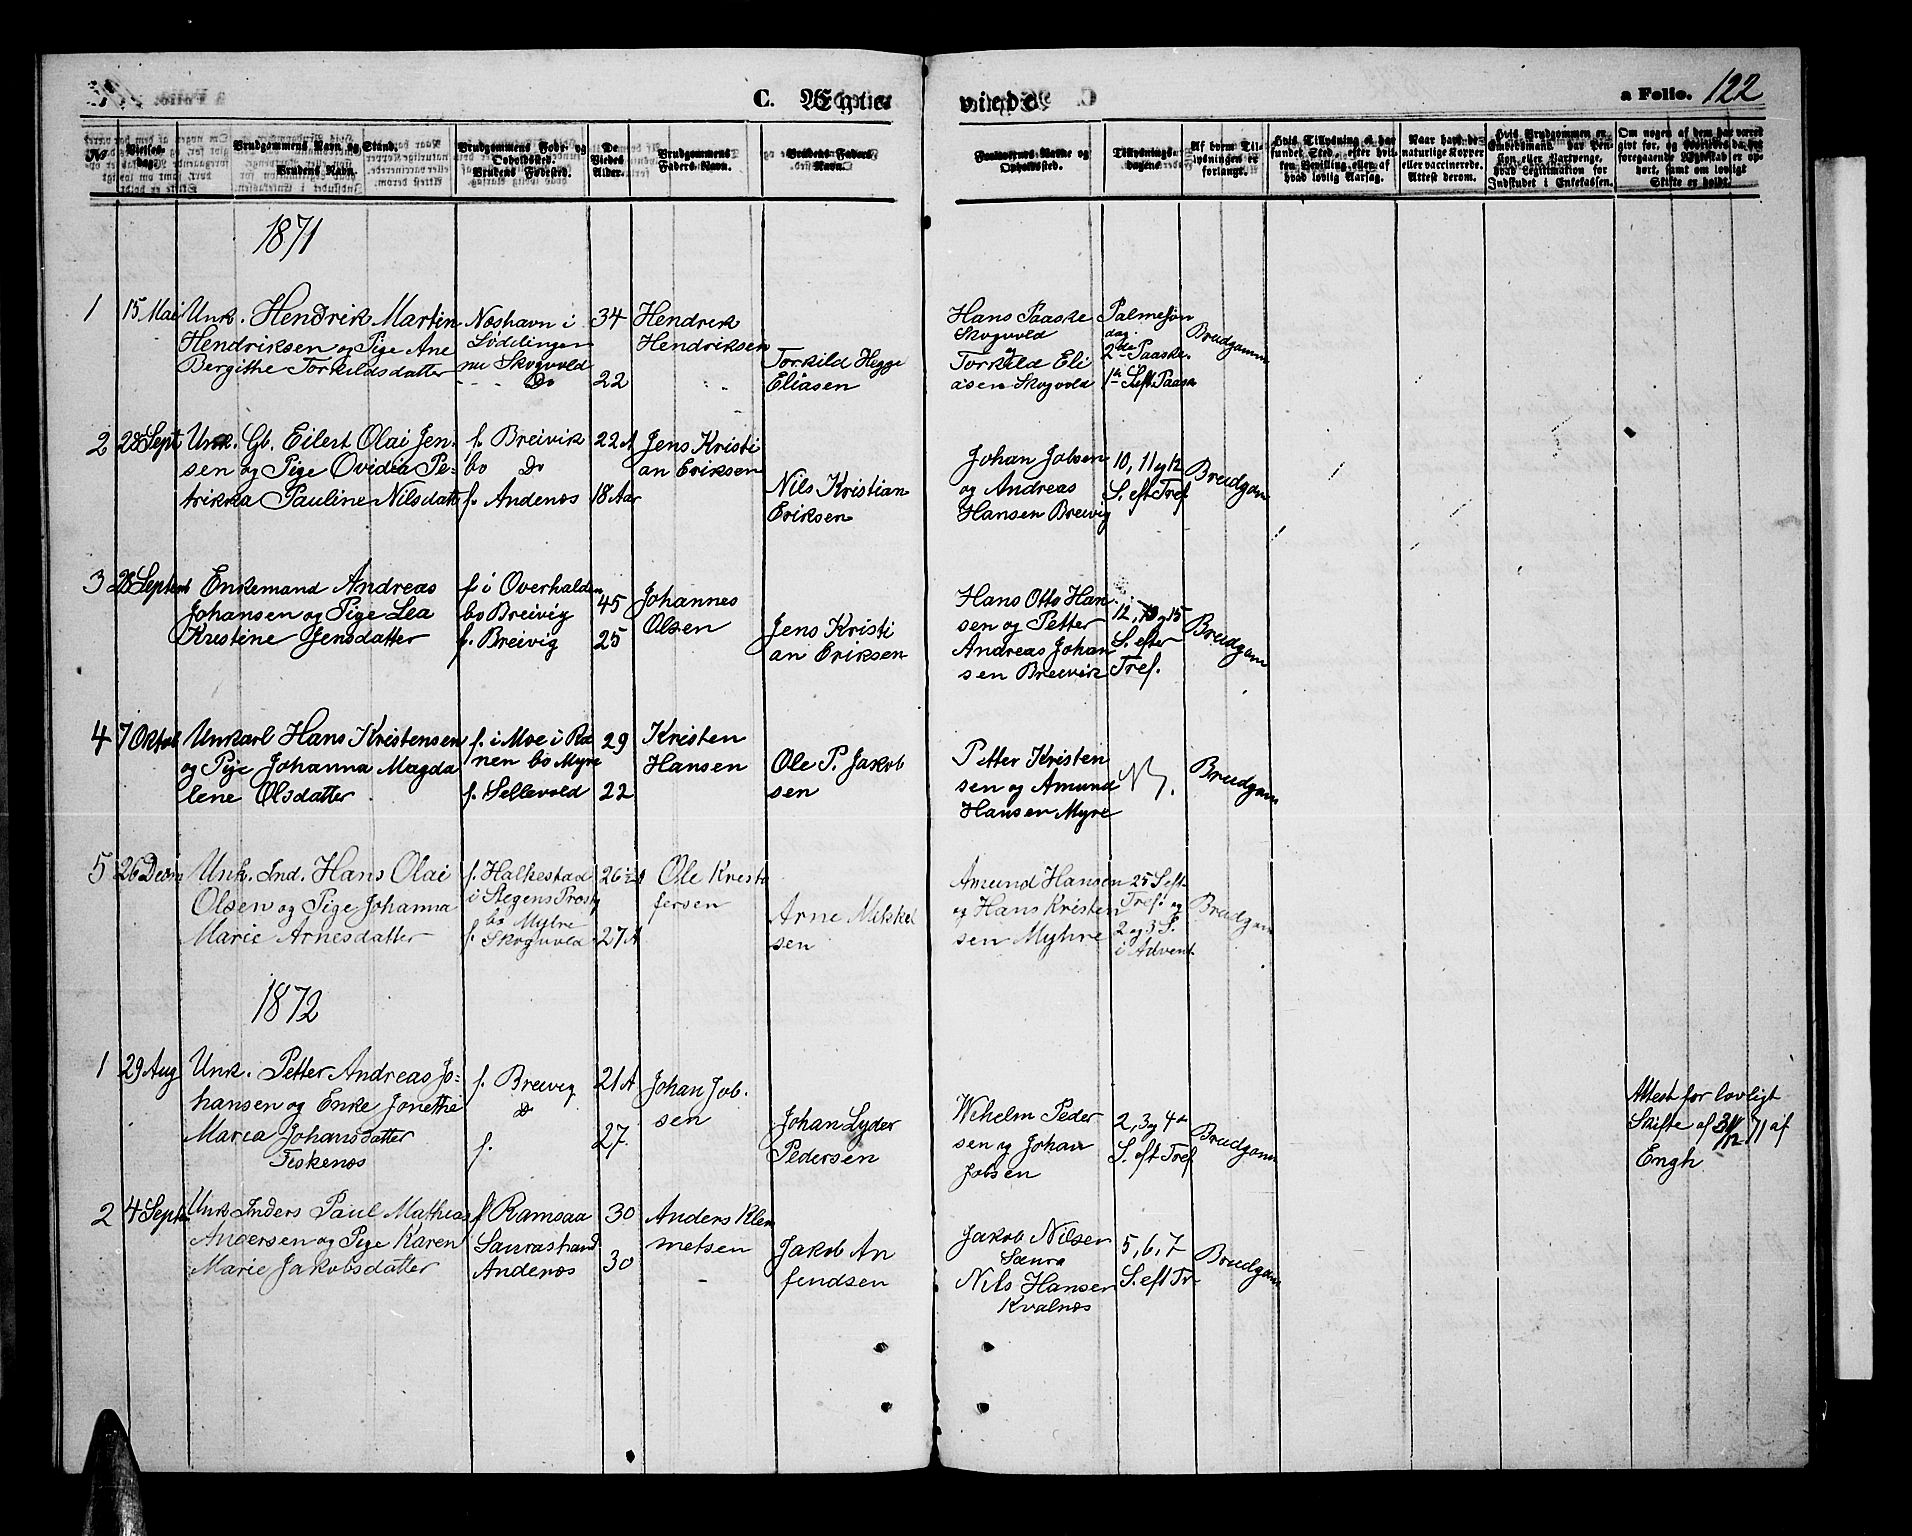 C. Ægteviede.
a Folio. 122
No.
Vielses-dag.
Brudgommens Navn og Stand.
Brudens Navn.
Brudgommens Føde- og Opholdssted.
Brudens Fødested.
De Viedes Alder.
Brudgommens Faders Navn.
Brudens Faders Navn.
Forlovernes Navne og Opholdssted.
Tillysnings-dagene
Af hvem Tillysningen er forlangt.
1871
1
15 Mai
Unk. Hendrik Martin
Hendriksen og Pige Ane
Bergithe Torkildsdatter
Næshavn i
Lødelingen
nu Skogvold
Do
34
22
Hendrik
Hendriksen
Torkild Hegge
Eliasen
Hans Paaske
Skogvold
og
Torkild Eli
asen Skogvold
Palmesøn
dag
2de Paaske.
1ste S. eft. Paaske
Brudgommen
2
28 Sept
Unk. Gb. Eilert Olai Jen-
sen og Pige Ovidia Pe-
trikka Pauline Nilsdatt
f. Breivik
bo Do
f. Andenæs
22 A
18 Aar
Jens Kristi
an Eriksen
Nils Kristian
Eriksen
Johan Jobsen
og Andreas
Hansen Breivig
10, 11 og 12
S. eft Tref
Brudgom
3
28 Septemb
Enkemand Andreas
Johansen og Pige Lea
Kristine Jensdatter
f. i Overhalden
bo Breivig
f. Breivig
45
25
Johannes
Olsen
Jens Kristi
an Eriksen
Hans Otto Han
sen og Petter
Andreas Johan
sen Breivik
12, 13 og 15
S. efter
Tref.
Brudgom
4
7 Oktob
Unkarl Hans Kristensen
og Pige Johanna Magda
lene Olsdatter
f. i Moe i Ra
nen bo Myre
f. Sellevold
29
22
Kristen
Hansen
Ole P. Jakob
sen
Petter Kristen
sen og Amund
Hansen Myre
Brudgom
5
26 Decm
Unk. Ind. Hans Olai
Olsen og Pige Johanna
Marie Arnesdatter
f. Halkestad
i Stegens Præstg
bo Myhre
f. Skogvold
26 1/2 A
27 A
Ole Kristo
fersen
Arne Mikkel
sen
Amund Hansen
og Hans Kristen
sen Myhre
25 S eft
Tref. og
2 og 3 S.
i Advent
Brudgom
1872
1
29 Aug
Unk. Petter Andreas Jo-
hansen og Enke Jonethe
Maria Johansdatter
Fiskenæs
f. Breivig
Do
f.
21 A
27.
Johan Job.
sen
Johan Lyder
Pedersen
Wihelm Peder
sen og Johan
Jobsen
2, 3 og 4de
S. eft Tref
Brudgom
Attest for lovligt
Skifte af 31/12 71 af
Engh
2
4 Septb
Unk Inders Paul Mathias
Andersen og Pige Karen
Marie Jakobsdatter
f Ramsaa
Saurastrand
Andenæs
30
30
Anders Klem
metsen
Jakob An
fendsen
Jakob Nilsen
Saura
Nils Hansen
Kvalnæs
5, 6, 7
S. eft Tr
Brudgom